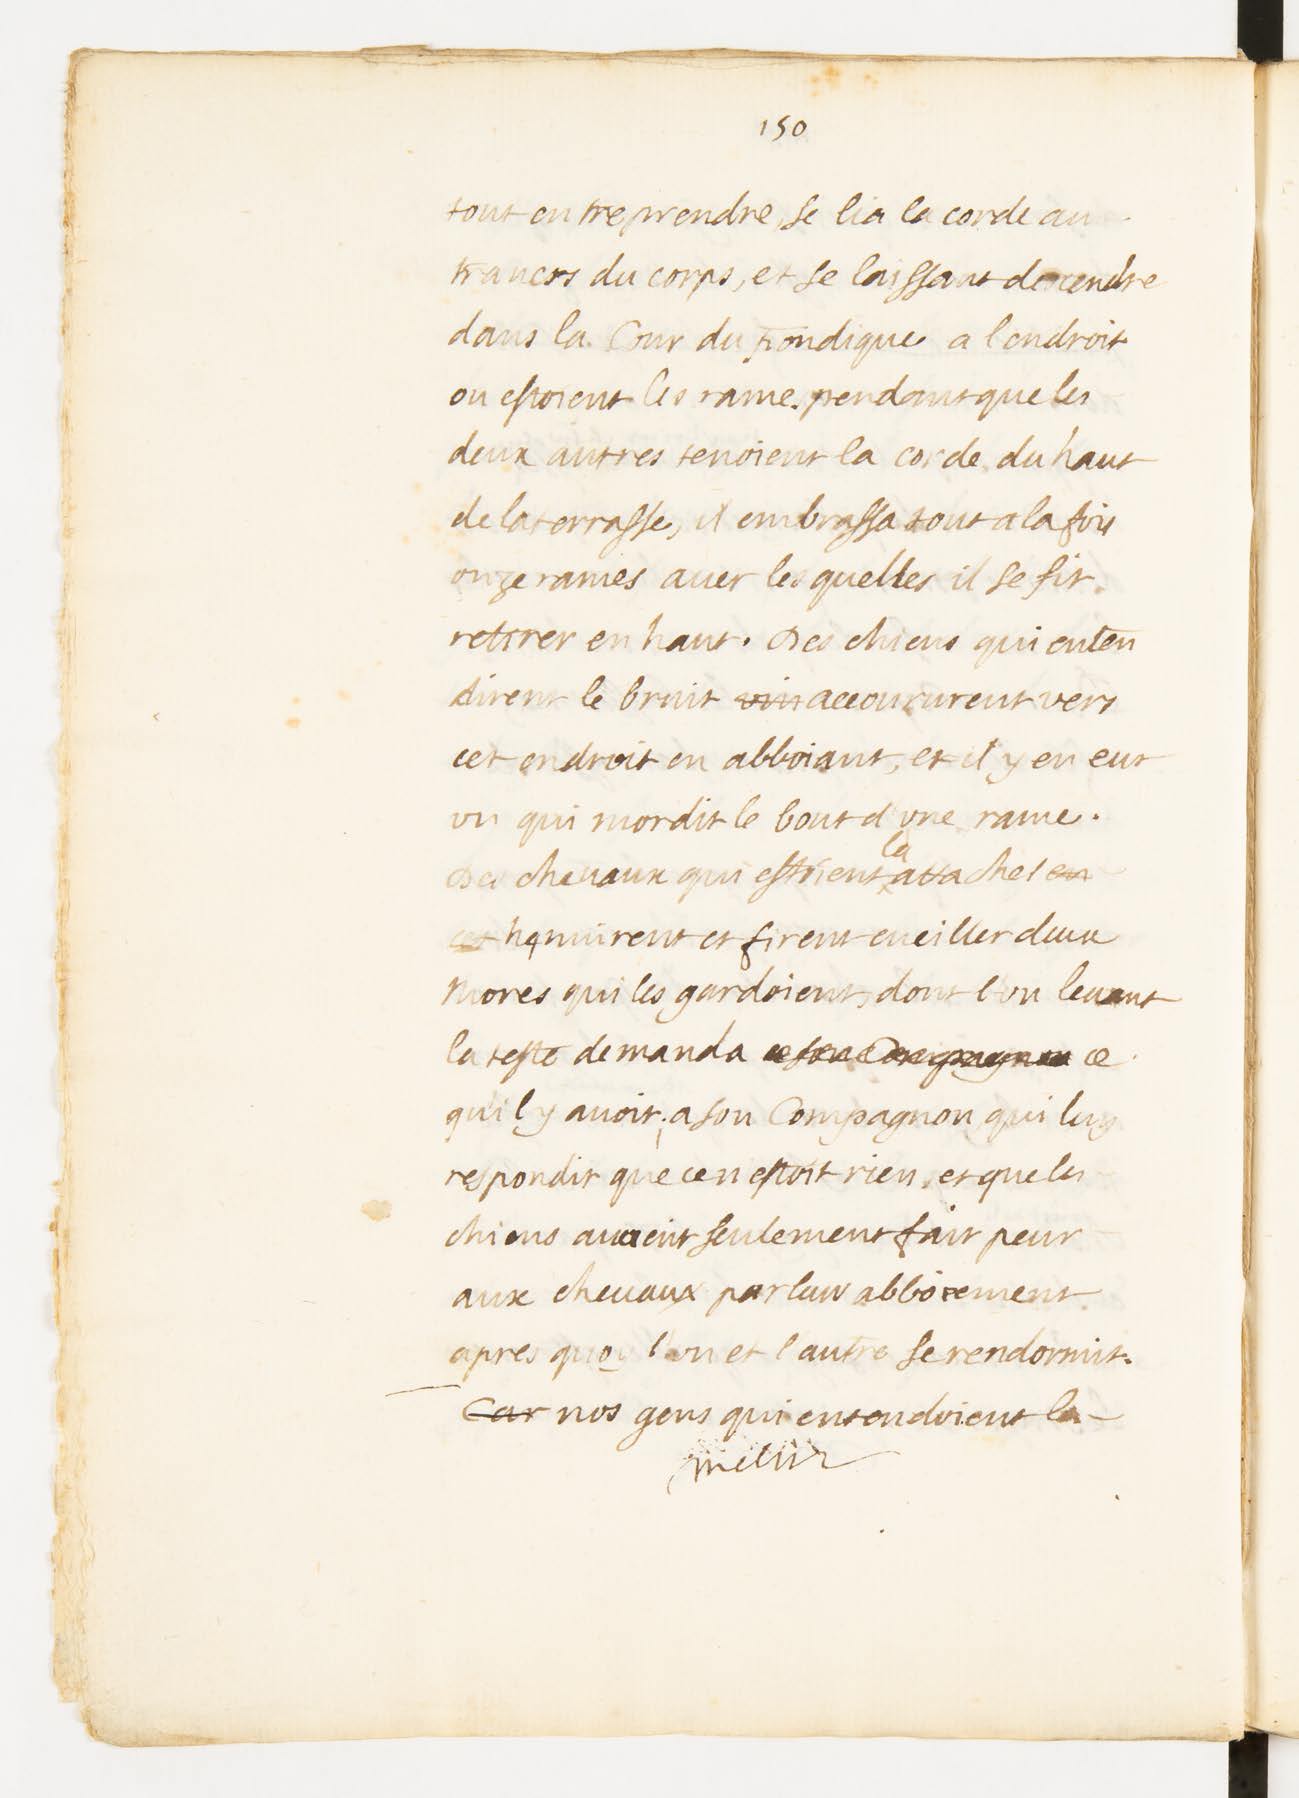 150
tout entreprendre, se lia la corde au
travers du corps, et se laissant descendre
dans la Cour du fondique a l'endroit
ou estoient les rame. pendant que les
deux autres tenoient la corde du haut
de la terrasse, il embrassa tout a la fois
onze rames avec lesquelles il se fit
retirer en haut. Des chiens qui enten
dirent le bruit vin accoururent vers
cet endroit en abboiant, et il y en eut
vn qui mordit le bout d'vne rame.
la
Des cheuaux qui estoient attachez en
cet hennirent et firent eueiller deux
Mores qui les gardoient, dont l'vn leuant
la teste demanda a son Compagnon ce
qu'il y auoit, a son Compagnon qui luy
respondit que ce n'estoit rien, et que les
chiens auoient seulement fait peur
aux cheuaux par leur abboiement
apres quoy l'vn et l'autre se rendormit.
Car nos gens qui entendoient la